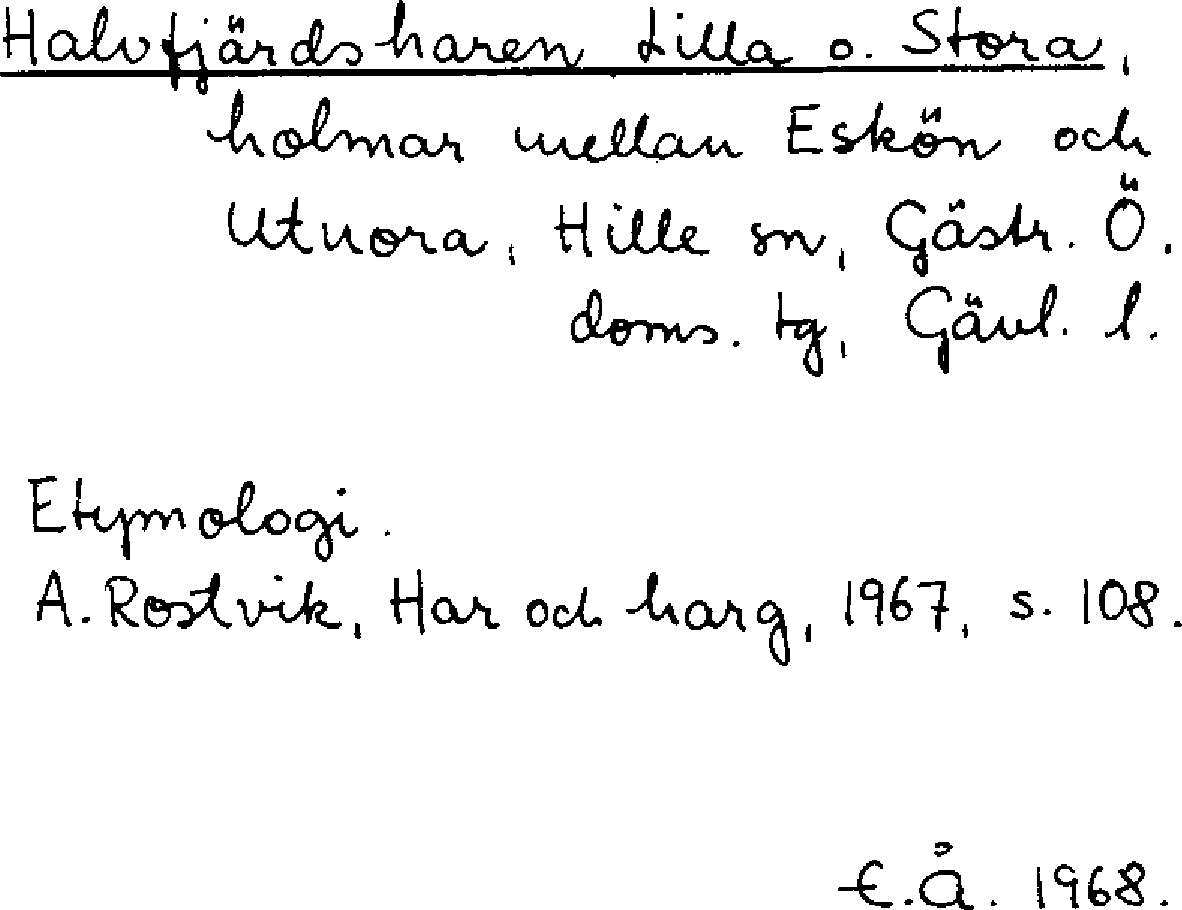 Halvfjärdsharen Lilla o. Stora,
holmar mellan Eskön och
Utnora, Hille sn, Gästr. Ö.
doms. tg, Gävl. l.
Etymologi.
A. Rostvik, Har och harg, 1967, s. 108.
E.Å. 1968.